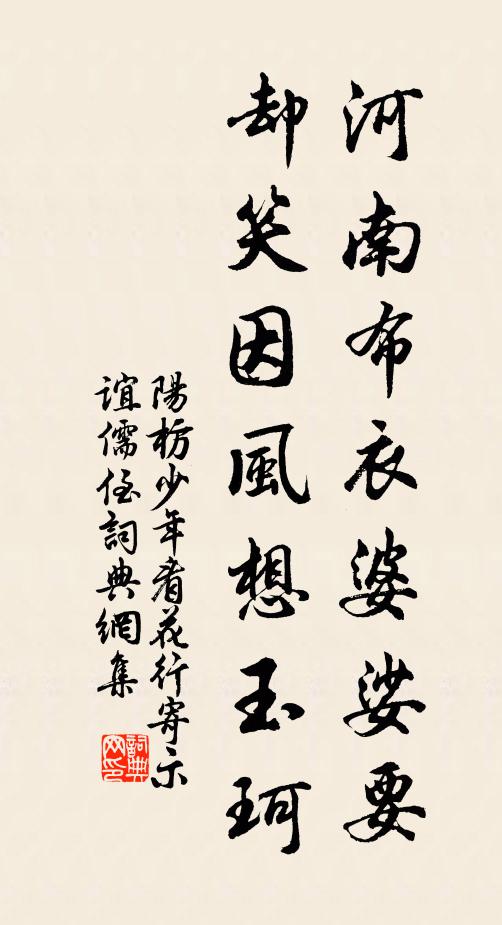 河南布衣婆娑要
却笑因風想玉珂
陽枋少年看花行寄示
誼儒侄詞典網集
詞典網印